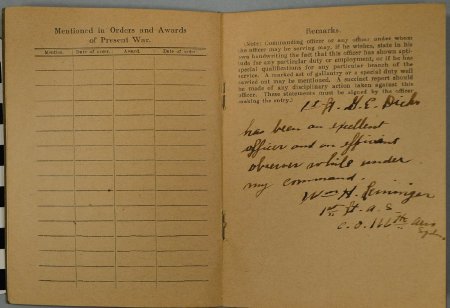 Mentioned in Orders and Awards
of Present War.
Mention. Date of order. Award. Date of order.
Remarks.
(Note: Commanding officer or any officer under whom
the officer may be serving may, if he wishes, state in his
own handwriting the fact that this officer has shown apti-
tude for any particular duty or employment, or if he has
special qualifications for any particular branch of the
service. A marked act of gallantry or a special duty well
carried out may be mentioned. A succinct report should
be made of any disciplinary action taken against this
officer. These statements must be signed by the officer
making the entry.)
1st Lt. G. E. Dicks
has been an excellent
officer and an efficient
observer while under
my command.
Wm H. Leininger
1st Lt. A. S.
C.O. 166th Aero
Sqdn